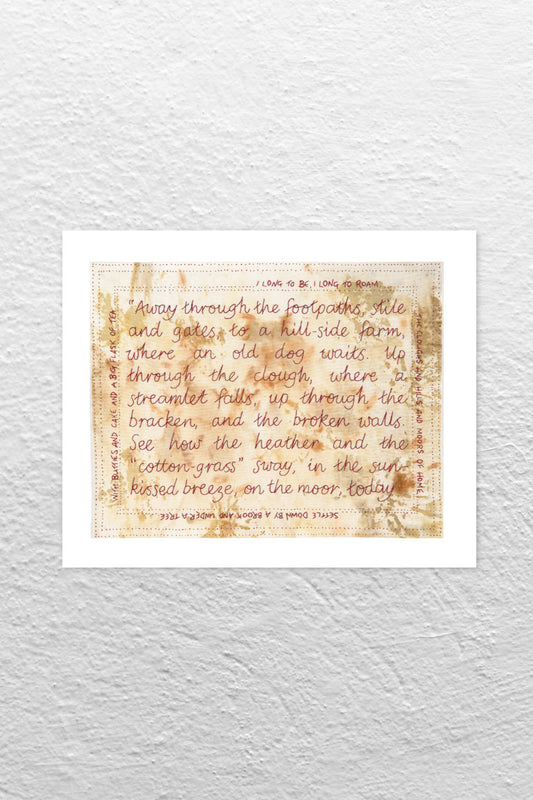 I LONG TO BE, I LONG TO ROAM
THE CLOUGHS AND HILLS AND MOORS OF HOME
SETTLE DOWN BY A BROOK AND UNDER A TREE
WITH BUTTIES AND CAKE AND A BIG FLASK OF TEA
"Away through the footpaths, stile
and gates to a hill-side farm,
where an old dog waits. Up
through the clough, where a
streamlet falls, up through the
bracken, and the broken walls.
See how the heather and the
"cotton-grass" sway, in the sun-
kissed breeze, on the moor, today